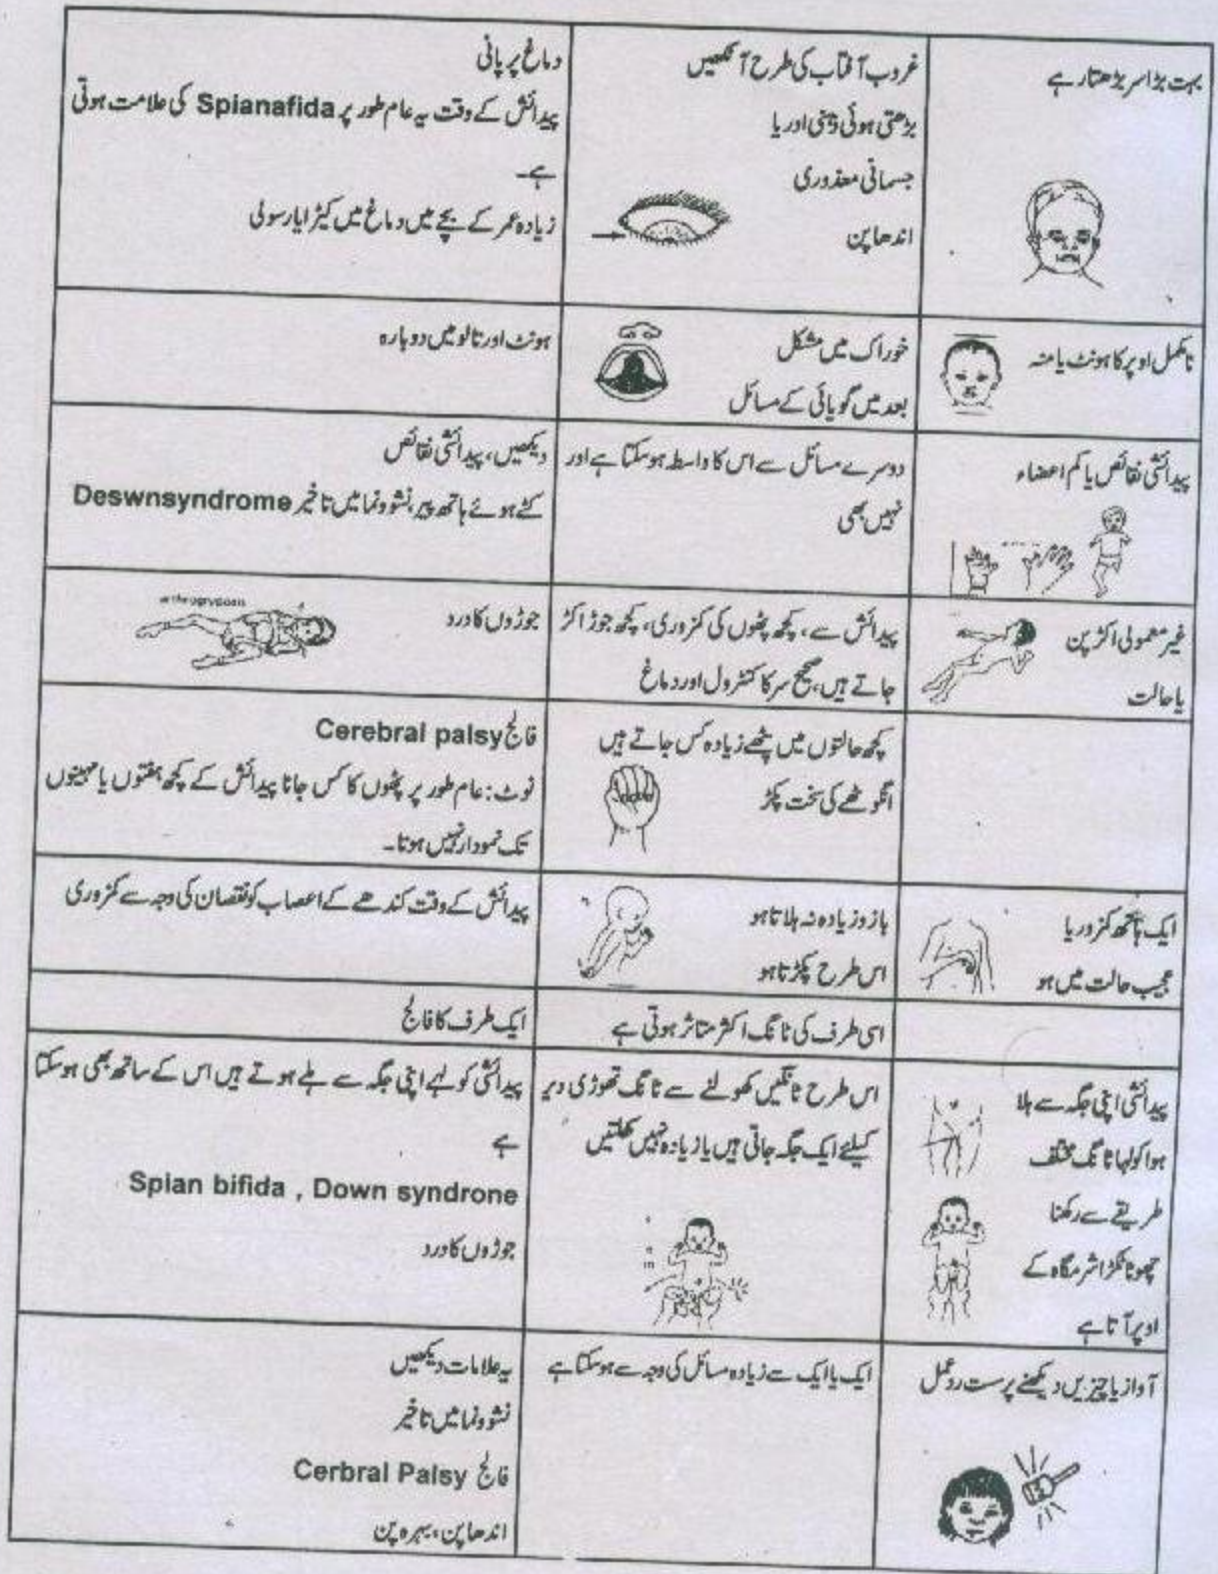 بہت بڑا سر بڑھتا رہے
غروب آفتاب کی طرح آنکھیں
بڑھتی ہوئی ذہنی اور یا
جسمانی معذوری
اندھا پن
دماغ پر پانی
پیدائش کے وقت یہ عام طور پر Spianafida کی علامت ہوتی
ہے۔
زیادہ عمر کے بچے میں دماغ میں کیڑا یا رسولی
نامکمل اوپر کا ہونٹ یا منہ
خوراک میں مشکل
بعد میں گویائی کے مسائل
ہونٹ اور تالو میں دوبارہ
پیدائشی نقائص یا کم اعضاء
دوسرے مسائل سے اس کا واسطہ ہو سکتا ہے اور
نہیں بھی
دیکھیں، پیدائشی نقائص
کٹے ہوئے ہاتھ پیر، نشوونما میں تاخیر Deswnsyndrome
غیر معمولی اکڑ پن
یا حالت
پیدائش سے، کچھ پٹھوں کی کمزوری، کچھ جوڑ اکڑ
جاتے ہیں، صحیح سر کا کنٹرول اور دماغ
جوڑوں کا درد
کچھ حالتوں میں پٹھے زیادہ کس جاتے ہیں
انگوٹھے کی سخت پکڑ
فالج Cerebral palsy
نوٹ: عام طور پر پٹھوں کا کس جانا پیدائش کے کچھ ہفتوں یا مہینوں
تک نمودار نہیں ہوتا۔
ایک ہاتھ کمزور یا
عجیب حالت میں ہو
بازو زیادہ نہ ہلاتا ہو
اس طرح پکڑتا ہو
پیدائش کے وقت کندھے کے اعصاب کو نقصان کی وجہ سے کمزوری
اسی طرف کی ٹانگ اکثر متاثر ہوتی ہے
ایک طرف کا فالج
پیدائشی اپنی جگہ سے ہلا
ہوا کولہا ٹانگ مختلف
طریقے سے رکھنا
چھوٹا ٹکڑا شرمگاہ کے
اوپر آتا ہے
اس طرح ٹانگیں کھولنے سے ٹانگ تھوڑی دیر
کیلئے ایک جگہ جاتی ہیں یا زیادہ نہیں کھلتیں
پیدائشی کولہے اپنی جگہ سے ہلے ہوتے ہیں اس کے ساتھ بھی ہو سکتا
ہے
Spian bifida , Down syndrone
جوڑوں کا درد
آواز یا چیزیں دیکھنے پر سست ردعمل
ایک یا ایک سے زیادہ مسائل کی وجہ سے ہو سکتا ہے
یہ علامات دیکھیں
نشوونما میں تاخیر
فالج Cerbral Palsy
اندھا پن، بہرہ پن